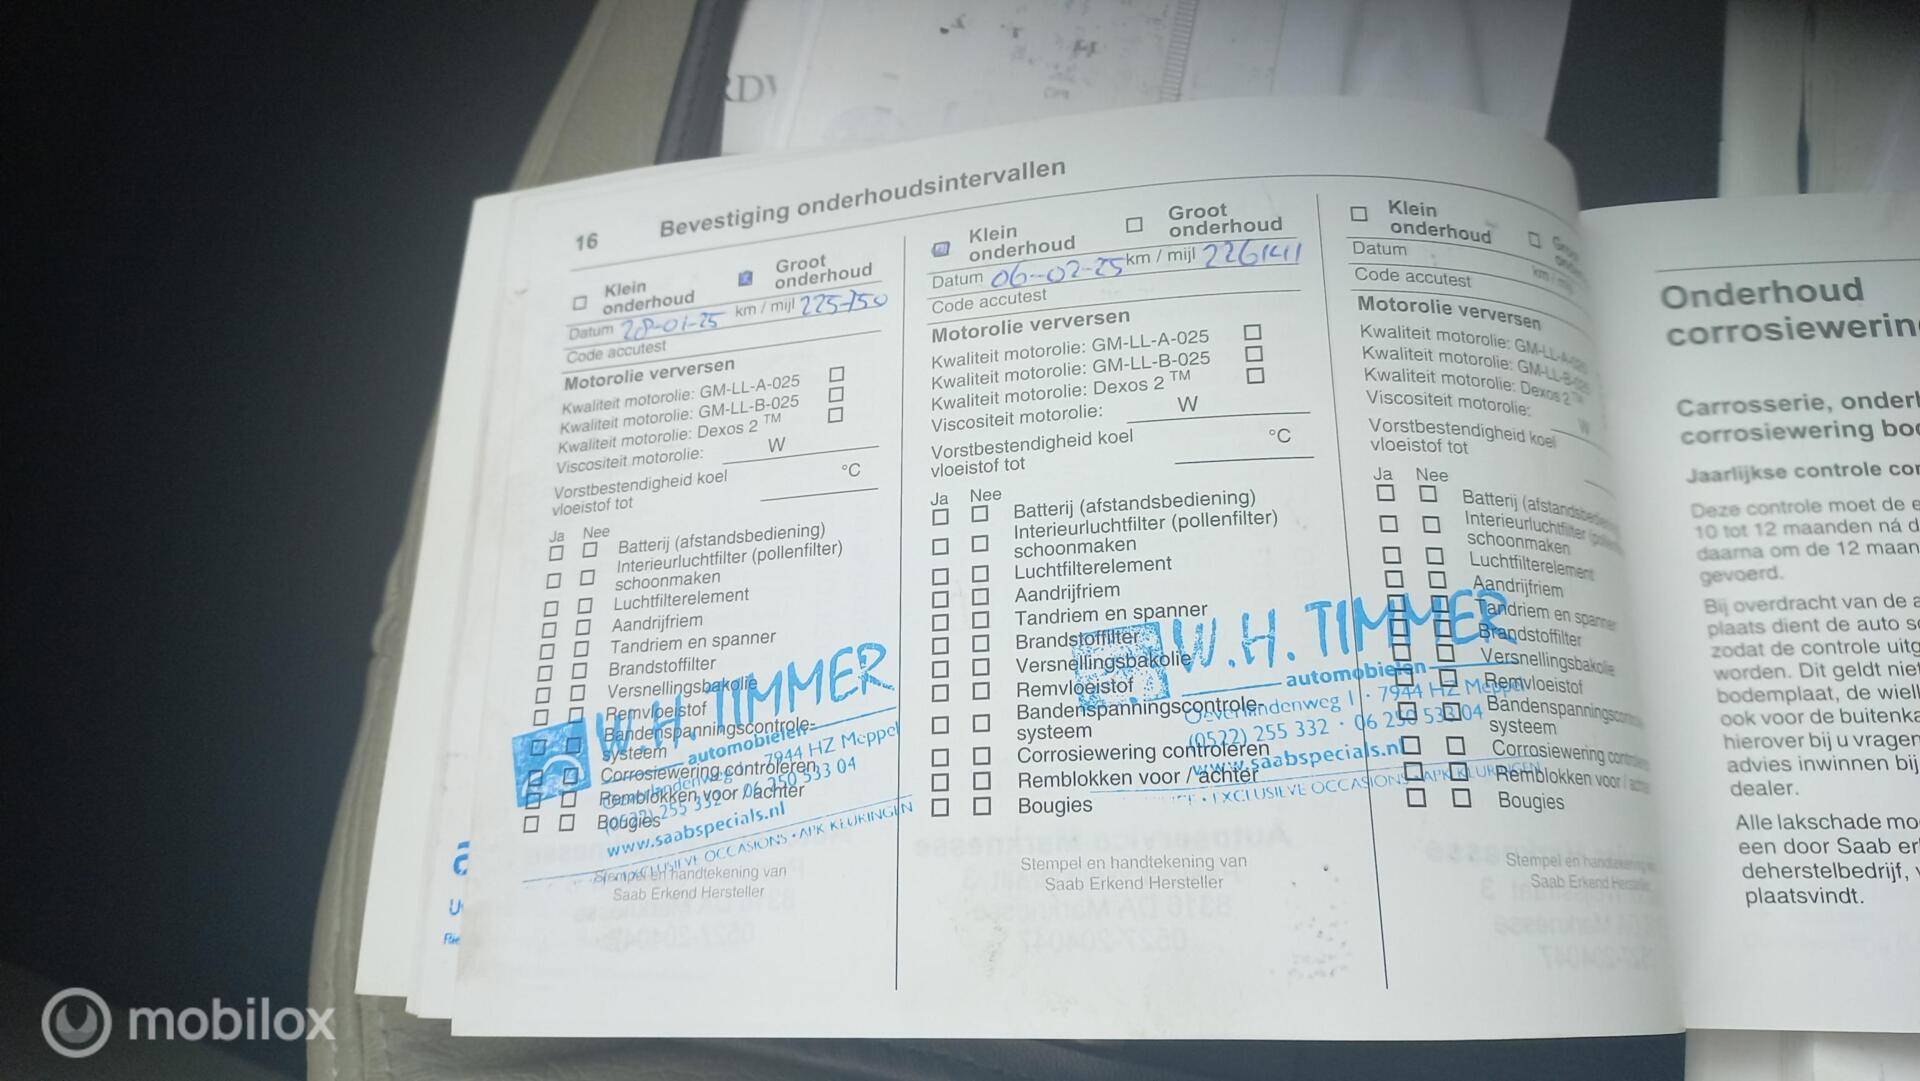 16 Bevestiging onderhoudsintervallen
Klein onderhoud
Groot onderhoud
Datum 28-01-25 km / mijl 225750
Code accutest
Motorolie verversen
Kwaliteit motorolie: GM-LL-A-025
Kwaliteit motorolie: GM-LL-B-025
Kwaliteit motorolie: Dexos 2 ™
Viscositeit motorolie: W
Vorstbestendigheid koel
vloeistof tot °C
Ja Nee
Batterij (afstandsbediening)
Interieurluchtfilter (pollenfilter)
schoonmaken
Luchtfilterelement
Aandrijfriem
Tandriem en spanner
Brandstoffilter
Versnellingsbakolie
Remvloeistof
Bandenspanningscontrole-
systeem
Corrosiewering controleren
Remblokken voor / achter
Bougies
W.H. TIMMER
automobielen
7944 HZ Meppel
(0522) 255 332 · 06 250 533 04
www.saabspecials.nl
EXCLUSIEVE OCCASIONS · APK KEURINGEN
Stempel en handtekening van
Saab Erkend Hersteller
Klein
onderhoud
Groot
onderhoud
Datum 06-02-25 km / mijl 226141
Code accutest
Motorolie verversen
Kwaliteit motorolie: GM-LL-A-025
Kwaliteit motorolie: GM-LL-B-025
Kwaliteit motorolie: Dexos 2 ™
Viscositeit motorolie: W
Vorstbestendigheid koel
vloeistof tot °C
Ja Nee
Batterij (afstandsbediening)
Interieurluchtfilter (pollenfilter)
schoonmaken
Luchtfilterelement
Aandrijfriem
Tandriem en spanner
Brandstoffilter
Versnellingsbakolie
Remvloeistof
Bandenspanningscontrole-
systeem
Corrosiewering controleren
Remblokken voor / achter
Bougies
W.H. TIMMER
automobielen
Oeverlandenweg 1 · 7944 HZ Meppel
(0522) 255 332 · 06 250 533 04
www.saabspecials.nl
EXCLUSIEVE OCCASIONS · APK KEURINGEN
Stempel en handtekening van
Saab Erkend Hersteller
Klein
onderhoud
Datum km / mijl
Code accutest
Motorolie verversen
Kwaliteit motorolie: GM-LL-A-025
Kwaliteit motorolie: GM-LL-B-025
Kwaliteit motorolie: Dexos 2 ™
Viscositeit motorolie: W
Vorstbestendigheid koel
vloeistof tot
Ja Nee
Batterij (afstandsbe
Interieurluchtfilter
schoonmaken
Luchtfilterelement
Aandrijfriem
Tandriem en spanner
Brandstoffilter
Versnellingsbakolie
Remvloeistof
Bandenspanningscon
systeem
Corrosiewering contro
Remblokken voor /
Bougies
Stempel en
Saab Erkend
Onderhoud
corrosiewering
Carrosserie, onder
corrosiewering bo
Jaarlijkse controle cor
Deze controle moet de e
10 tot 12 maanden ná d
daarna om de 12 maan
gevoerd.
Bij overdracht van de a
plaats dient de auto
zodat de controle uitg
worden. Dit geldt niet
bodemplaat, de wiel
ook voor de buitenka
hierover bij u vragen
advies inwinnen bij
dealer.
Alle lakschade mo
een door Saab er
deherstelbedrijf,
plaatsvindt.
mobilox